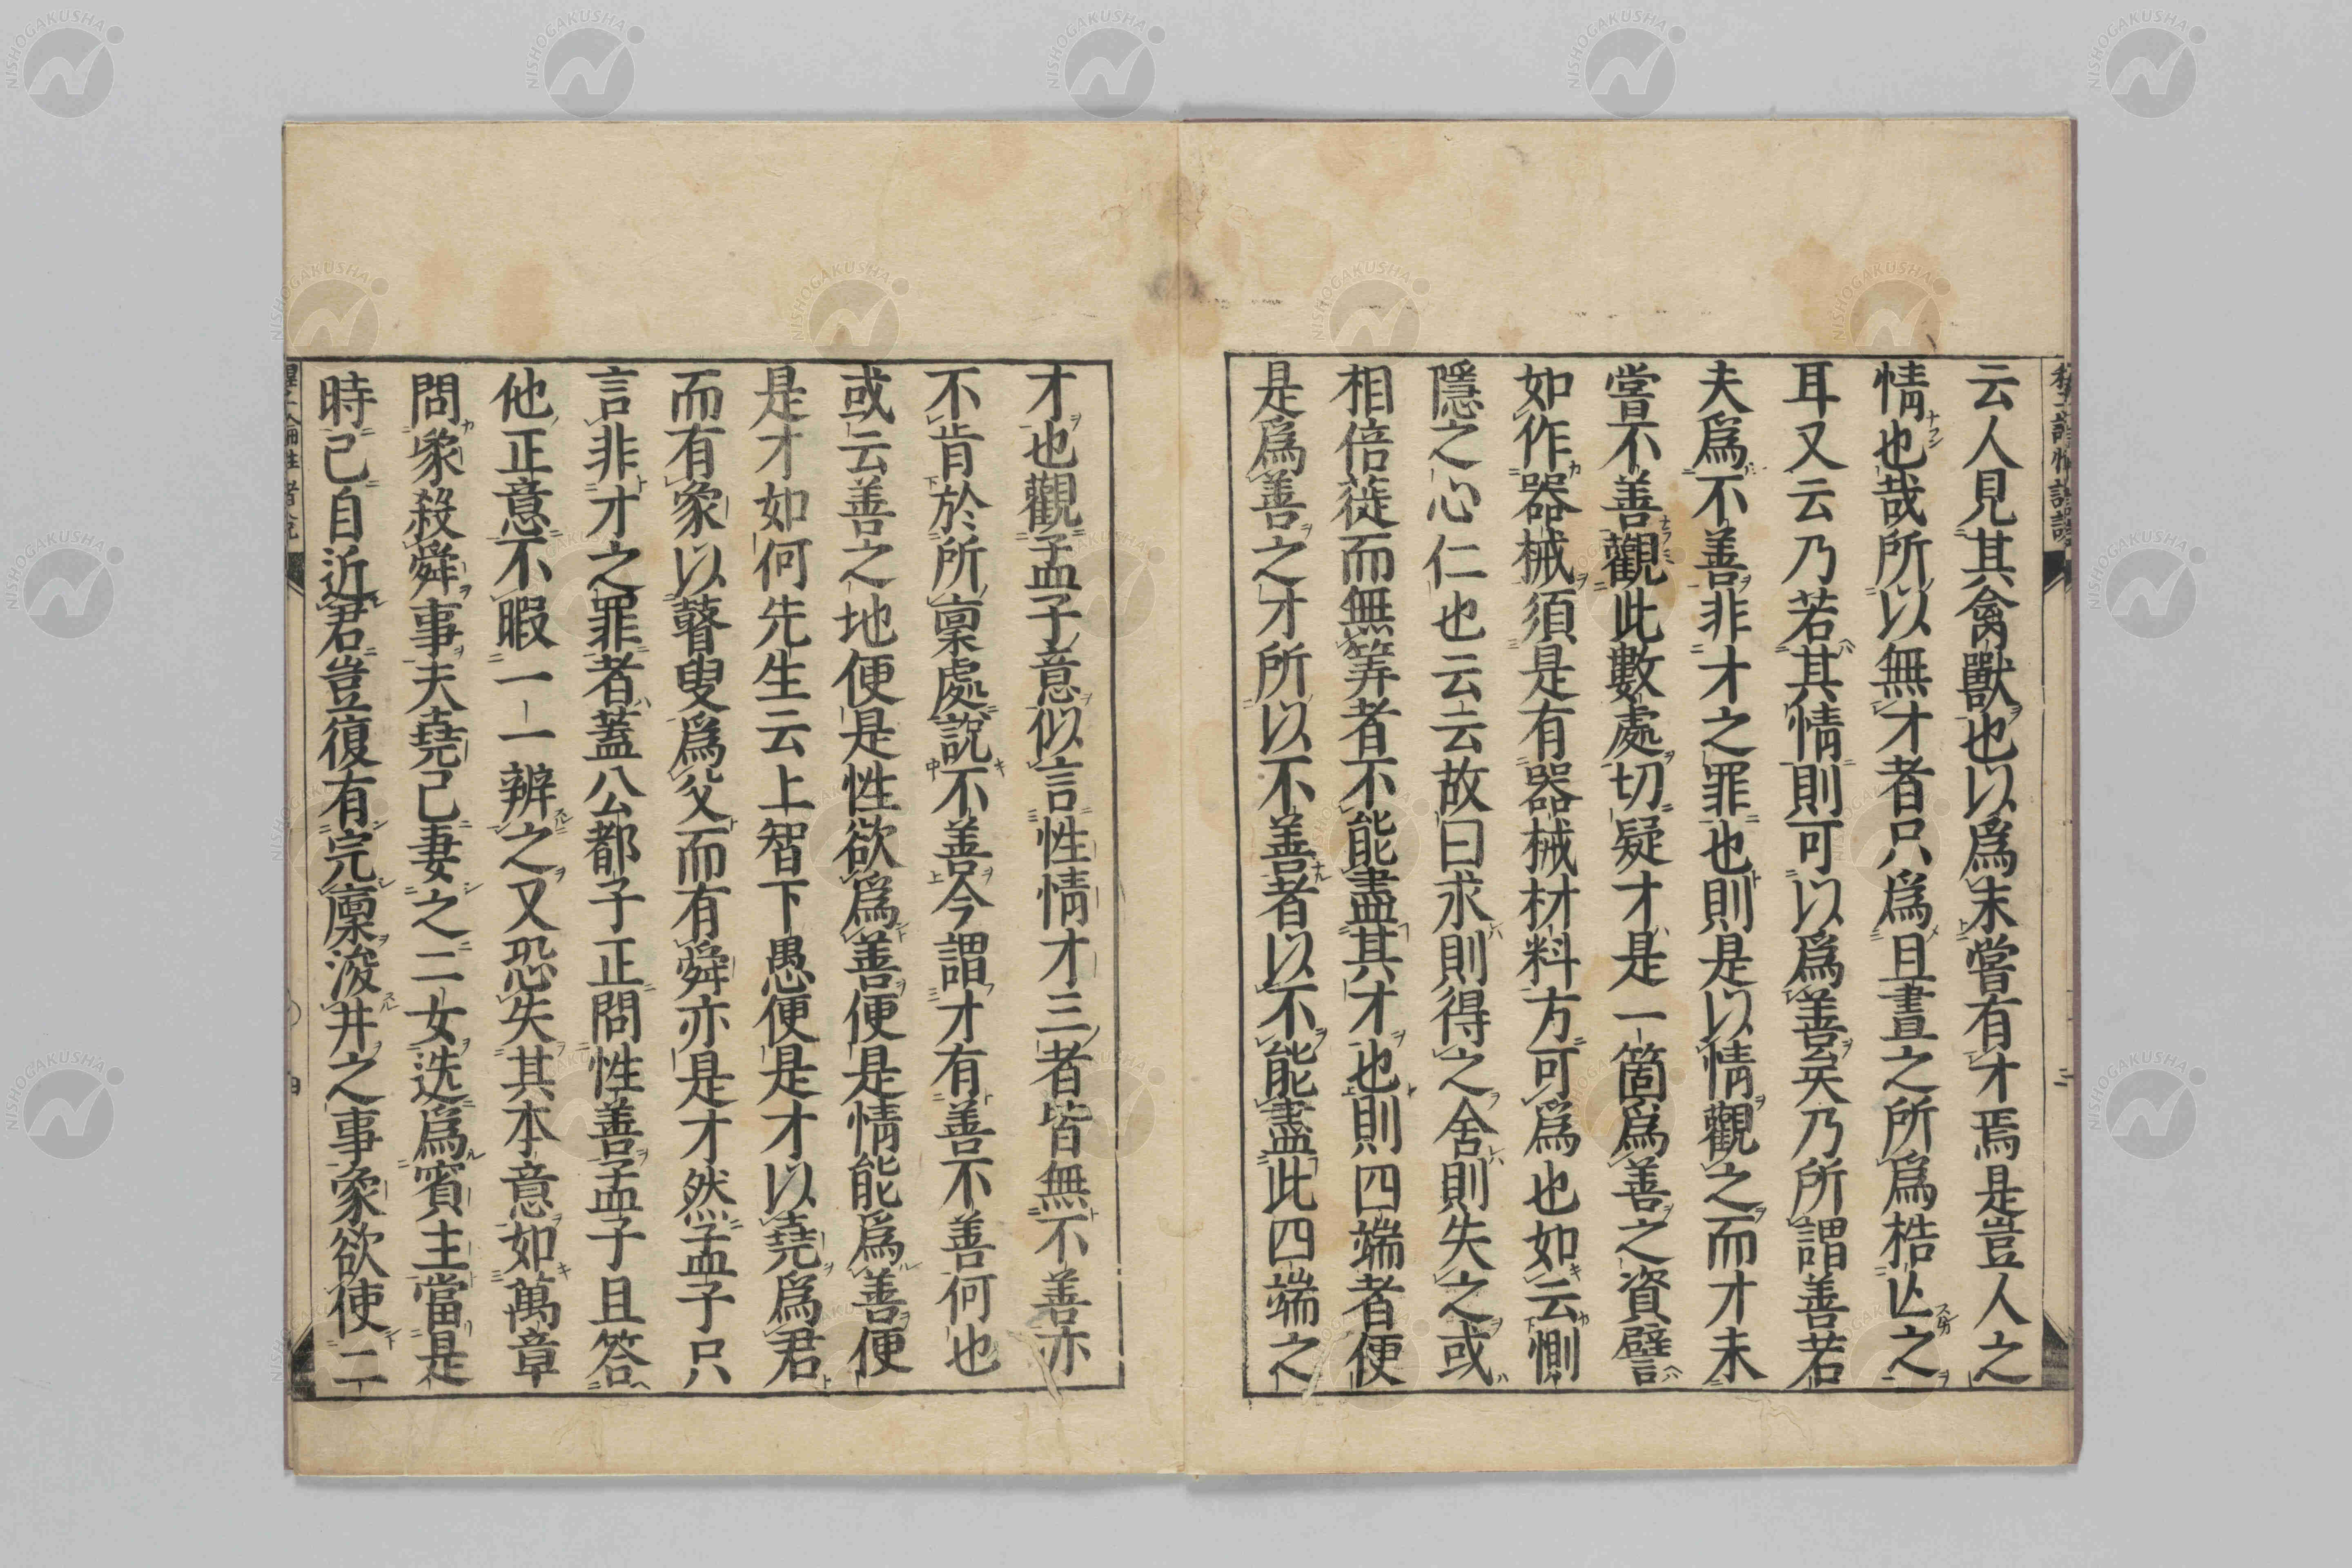 云人見其禽獸也以爲未嘗有才焉是豈人之
情也哉所以無才者只爲旦晝之所爲梏亾之
耳又云乃若其情則可以爲善矣乃所謂善若
夫爲不善非才之罪也則是以情觀之而才未
嘗不善觀此數處切疑才是一箇爲善之資譬
如作器械須是有器械材料方可爲也如云惻
隱之心仁也云云故曰求則得之舍則失之或
相倍蓰而無筭者不能盡其才也則四端者便
是爲善之才所以不善者以不能盡此四端之
才也觀孟子意似言性情才三者皆無不善亦
不肯於所稟處說不善今謂才有善不善何也
或云善之地便是性欲爲善便是情能爲善便
是才如何先生云上智下愚便是才以堯爲君
而有象以瞽叟爲父而有舜亦是才然孟子只
言非才之罪者蓋公都子正問性善孟子且答
他正意不暇一一辨之又恐失其本意如萬章
問象殺舜事夫堯已妻之二女迭爲賓主當是
時已自近君豈復有完廩浚井之事象欲使二
NISHOGAKUSHA